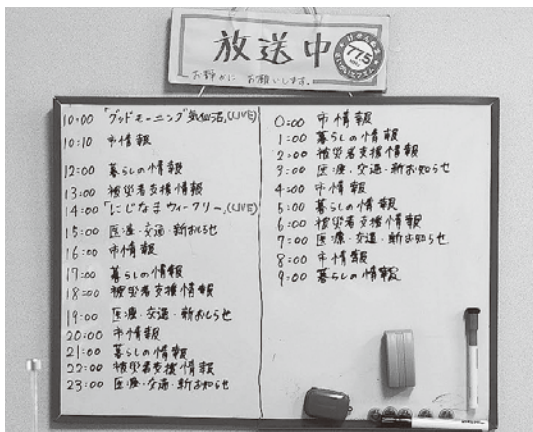 放送中
お静かに お願いします。
77.5
10:00 「グッドモーニング気仙沼」(LIVE)
10:10 市情報
12:00 暮らしの情報
13:00 被災者支援情報
14:00 「にじなまウィークリー」(LIVE)
15:00 医療・交通・新お知らせ
16:00 市情報
17:00 暮らしの情報
18:00 被災者支援情報
19:00 医療・交通・新おしらせ
20:00 市情報
21:00 暮らしの情報
22:00 被災者支援情報
23:00 医療・交通・新お知らせ
0:00 市情報
1:00 暮らしの情報
2:00 被災者支援情報
3:00 医療・交通・新お知らせ
4:00 市情報
5:00 暮らしの情報
6:00 被災者支援情報
7:00 医療・交通・新お知らせ
8:00 市情報
9:00 暮らしの情報